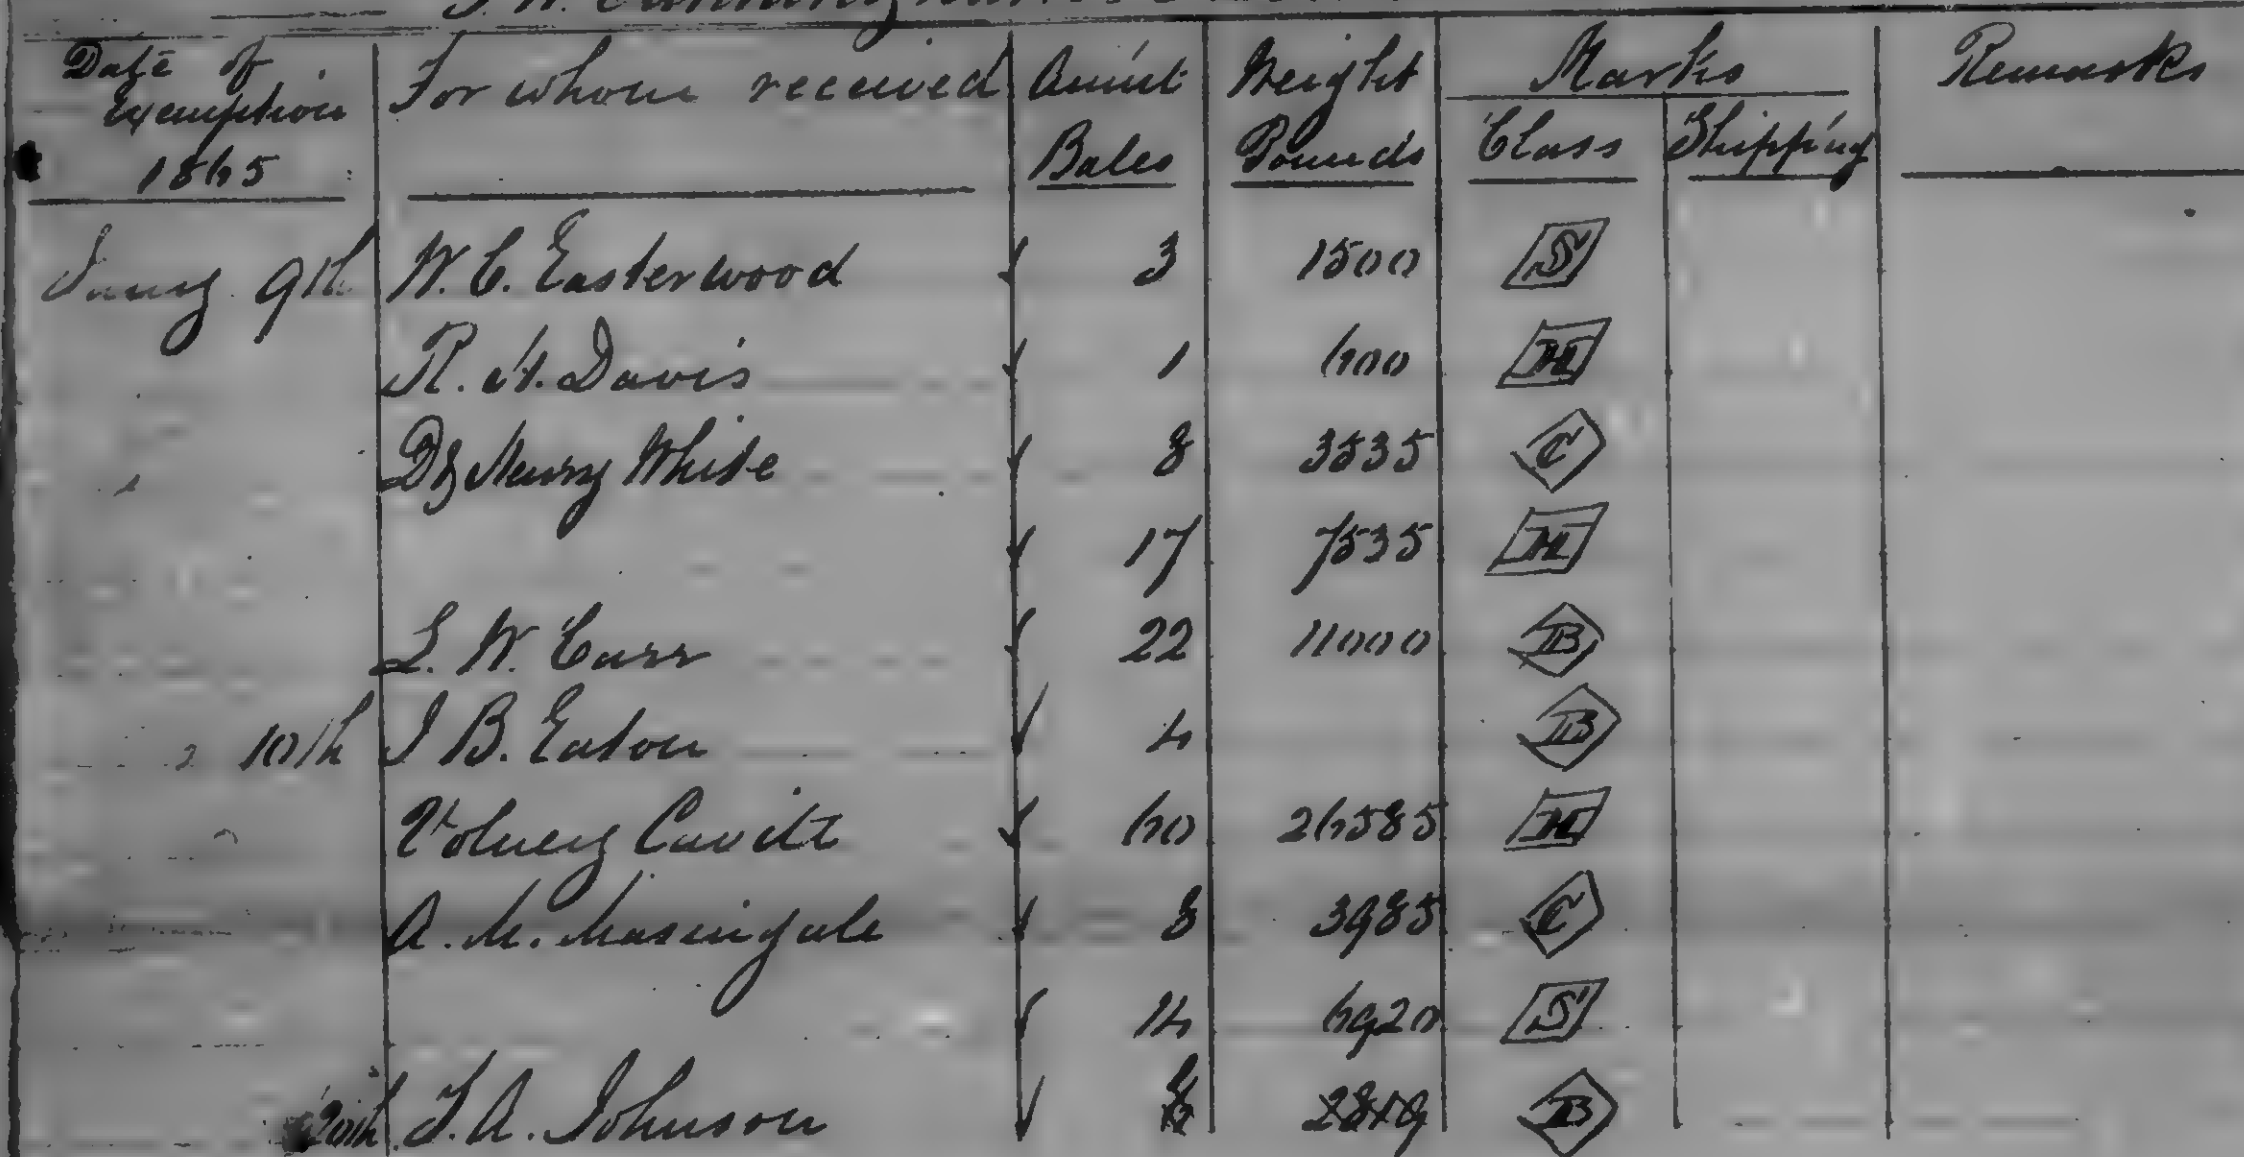 Date of Exemption 1865 For whom received Am't Bales Weight Pounds Marks Class Shipping Remarks
Jany 9th W. C. Easterwood 3 1500 S
R. H. Davis 1 600 H
Henry White 8 3535 C
17 7535 H
L. W. Carr 22 11000 B
10th J B. Eaton 4 B
Volney Cavitt 60 26585 H
A. M. Masingale 8 3985 C
14 6920 S
20th J. A. Johnson B